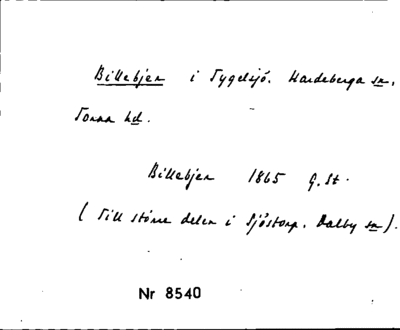 Billebjer i Tygelsjö. Hardeberga sn.
Torna hd.
Billebjer 1865 G.St.
(Till större delen i Sjöstorp. Dalby sn).
Nr 8540